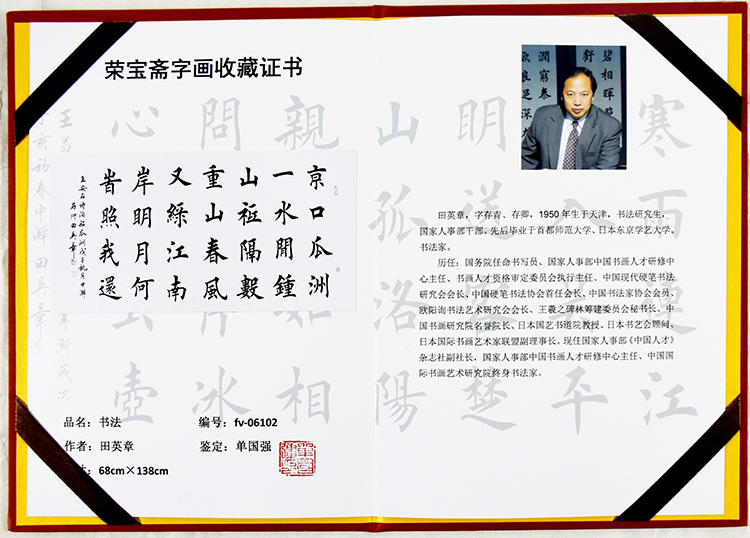 荣宝斋字画收藏证书
京口瓜洲
一水間鍾
山祗隔數
重山春風
又綠江南
岸明月何
旹照我還
王安石詩泊船瓜洲戊子 月中澣
田英章
品名：书法
编号：fv-06102
作者：田英章
鉴定：单国强
68cm×138cm
碧相暉
潤窮泰
欲良足深
田英章，字存青、存卿，1950年生于天津，书法研究生，
国家人事部干部，先后毕业于首都师范大学、日本东京学艺大学。
书法家。
历任：国务院任命书写员、国家人事部中国书画人才研修中
心主任、书画人才资格审定委员会执行主任、中国现代硬笔书法
研究会会长、中国硬笔书法协会首任会长、中国书法家协会会员、
欧阳询书法艺术研究会会长、王羲之碑林筹建委员会秘书长、中
国书画研究院名誉院长、日本国艺书道院教授、日本书艺会顾问、
日本国际书画艺术家联盟副理事长。现任国家人事部《中国人才》
杂志社副社长，国家人事部中国书画人才研修中心主任、中国国
际书画艺术研究院终身书法家。
寒雨連江
入 平
明送客楚
山孤洛陽
親 相
問 冰
心 壺